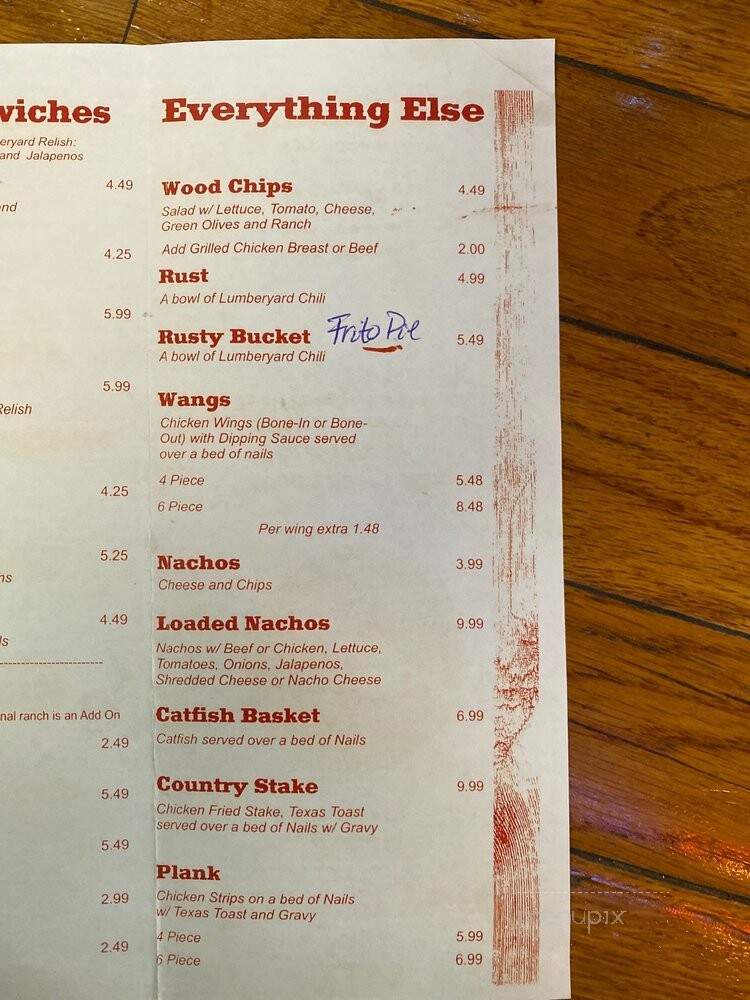 wiches
eryard Relish:
and Jalapenos
4.49
nd
4.25
5.99
5.99
Relish
4.25
5.25
ns
4.49
ls
nal ranch is an Add On
2.49
5.49
5.49
2.99
2.49
Everything Else
Wood Chips 4.49
Salad w/ Lettuce, Tomato, Cheese,
Green Olives and Ranch
Add Grilled Chicken Breast or Beef 2.00
Rust 4.99
A bowl of Lumberyard Chili
Rusty Bucket Frito Pie 5.49
A bowl of Lumberyard Chili
Wangs
Chicken Wings (Bone-In or Bone-
Out) with Dipping Sauce served
over a bed of nails
4 Piece 5.48
6 Piece 8.48
Per wing extra 1.48
Nachos 3.99
Cheese and Chips
Loaded Nachos 9.99
Nachos w/ Beef or Chicken, Lettuce,
Tomatoes, Onions, Jalapenos,
Shredded Cheese or Nacho Cheese
Catfish Basket 6.99
Catfish served over a bed of Nails
Country Stake 9.99
Chicken Fried Stake, Texas Toast
served over a bed of Nails w/ Gravy
Plank
Chicken Strips on a bed of Nails
w/ Texas Toast and Gravy
4 Piece 5.99
6 Piece 6.99